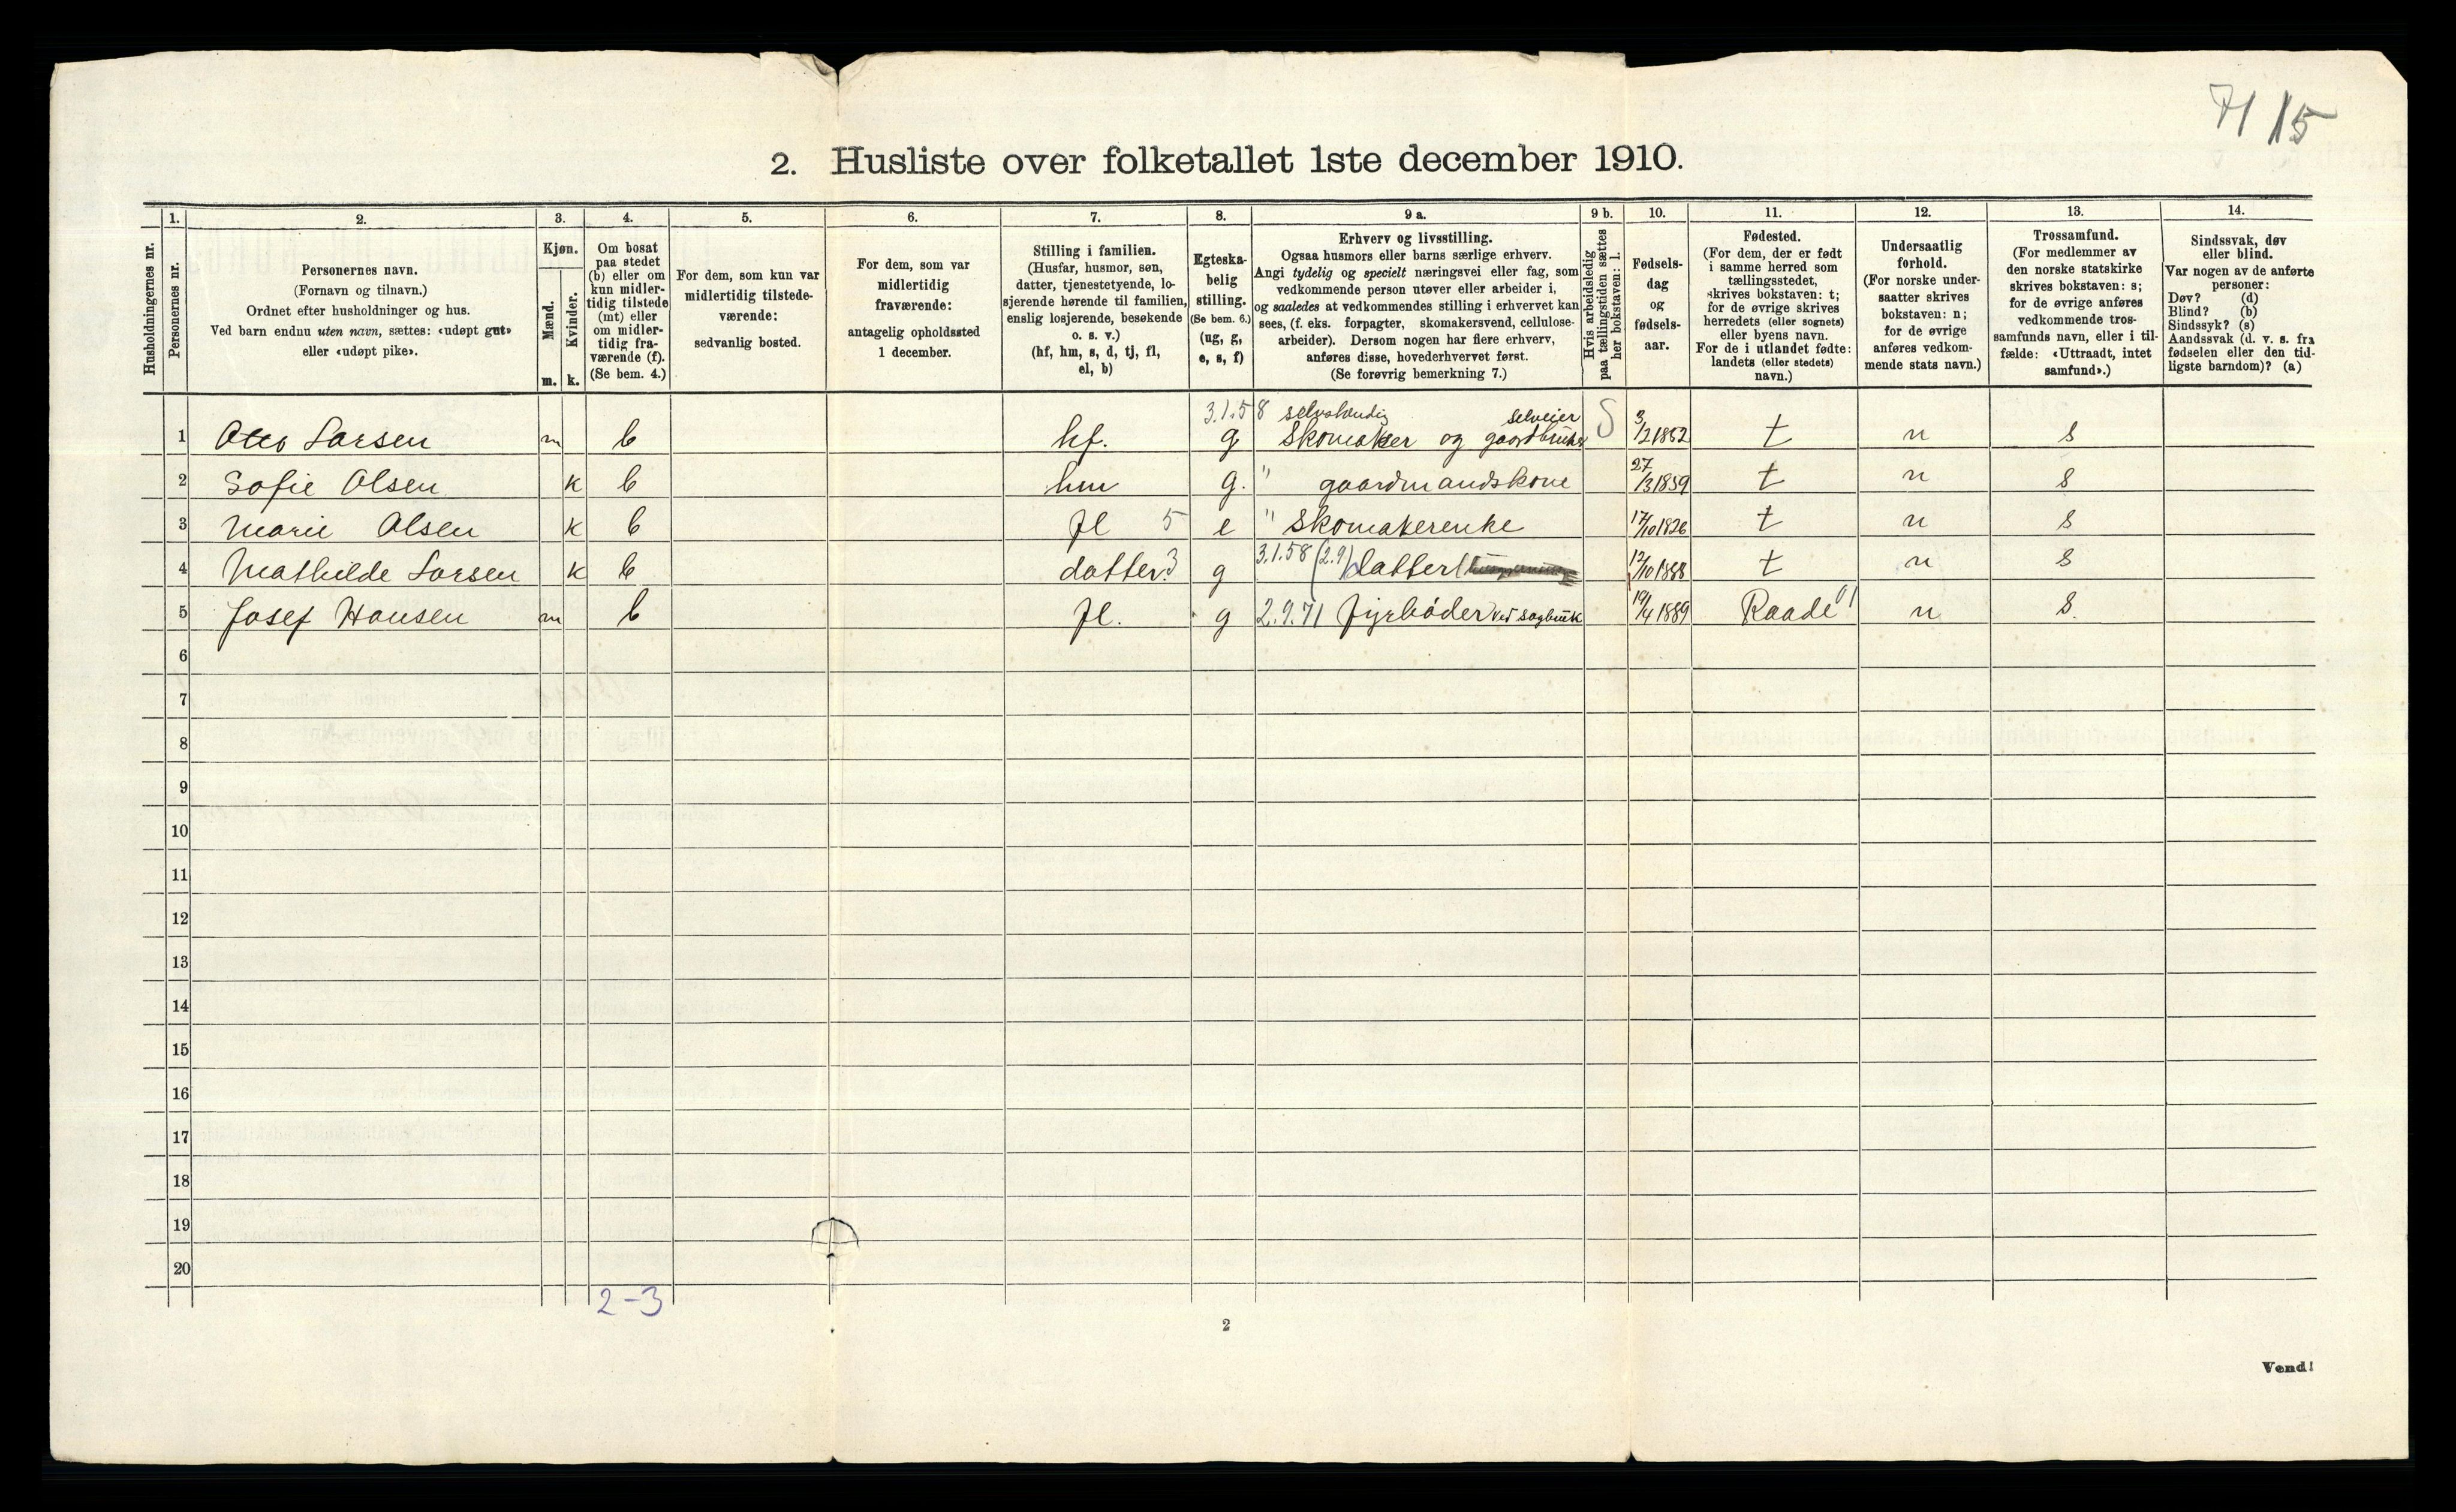 71 15
2. Husliste over folketallet 1ste december 1910.
Husholdningernes nr.
1.
Personernes nr.
2.
Personernes navn.
(Fornavn og tilnavn.)
Ordnet efter husholdninger og hus.
Ved barn endnu uten navn, sættes: «udøpt gut»
eller «udøpt pike».
3.
Kjøn.
Mænd.
m.
Kvinder.
k.
4.
Om bosat
paa stedet
(b) eller om
kun midler-
tidig tilstede
(mt) eller
om midler-
tidig fra-
værende (f).
(Se bem. 4.)
5.
For dem, som kun var
midlertidig tilstede-
værende:
sedvanlig bosted.
6.
For dem, som var
midlertidig
fraværende:
antagelig opholdssted
1 december.
7.
Stilling i familien.
(Husfar, husmor, søn,
datter, tjenestetyende, lo-
sjerende hørende til familien,
enslig losjerende, besøkende
o. s. v.)
(hf, hm, s, d, tj, fl,
el, b)
8.
Egteska-
belig
stilling.
(Se bem. 6.)
(ug, g,
e, s, f)
9 a.
Erhverv og livsstilling.
Ogsaa husmors eller barns særlige erhverv.
Angi tydelig og specielt næringsvei eller fag, som
vedkommende person utøver eller arbeider i,
og saaledes at vedkommendes stilling i erhvervet kan
sees, (f. eks. forpagter, skomakersvend, cellulose-
arbeider). Dersom nogen har flere erhverv,
anføres disse, hovederhvervet først.
(Se forøvrig bemerkning 7.)
9 b.
Hvis arbeidsledig
paa tællingstiden sættes
her bokstaven: l.
10.
Fødsels-
dag
og
fødsels-
aar.
11.
Fødested.
(For dem, der er født
i samme herred som
tællingsstedet,
skrives bokstaven: t;
for de øvrige skrives
herredets (eller sognets)
eller byens navn.
For de i utlandet fødte:
landets (eller stedets)
navn.)
12.
Undersaatlig
forhold.
(For norske under-
saatter skrives
bokstaven: n;
for de øvrige
anføres vedkom-
mende stats navn.)
13.
Trossamfund.
(For medlemmer av
den norske statskirke
skrives bokstaven: s;
for de øvrige anføres
vedkommende tros-
samfunds navn, eller i til-
fælde: «Uttraadt, intet
samfund».)
14.
Sindssvak, døv
eller blind.
Var nogen av de anførte
personer:
Døv? (d)
Blind? (b)
Sindssyk? (s)
Aandssvak (d. v. s. fra
fødselen eller den tid-
ligste barndom)? (a)
3.1.58 selvstændig selveier
1 Otto Larsen m b hf. g Skomaker og gaardbruker S 3/2 1852 t n s
2 Sofie Olsen k b hm g. " gaardmandskone 27/3 1859 t n s
3 Marie Olsen k b fl 5 e " Skomakerenke 17/10 1826 t n s
4 Mathilde Larsen k b datter 3 g 3.1.58 (2.9) datter 12/10 1888 t n s
5 Josef Hansen m b fl. g 2.9.71 fyrbøder ved sagbruk 19/4 1889 Raade 01 n s.
6
7
8
9
10
11
12
13
14
15
16
17
18
19
20
2-3
2
Vend!